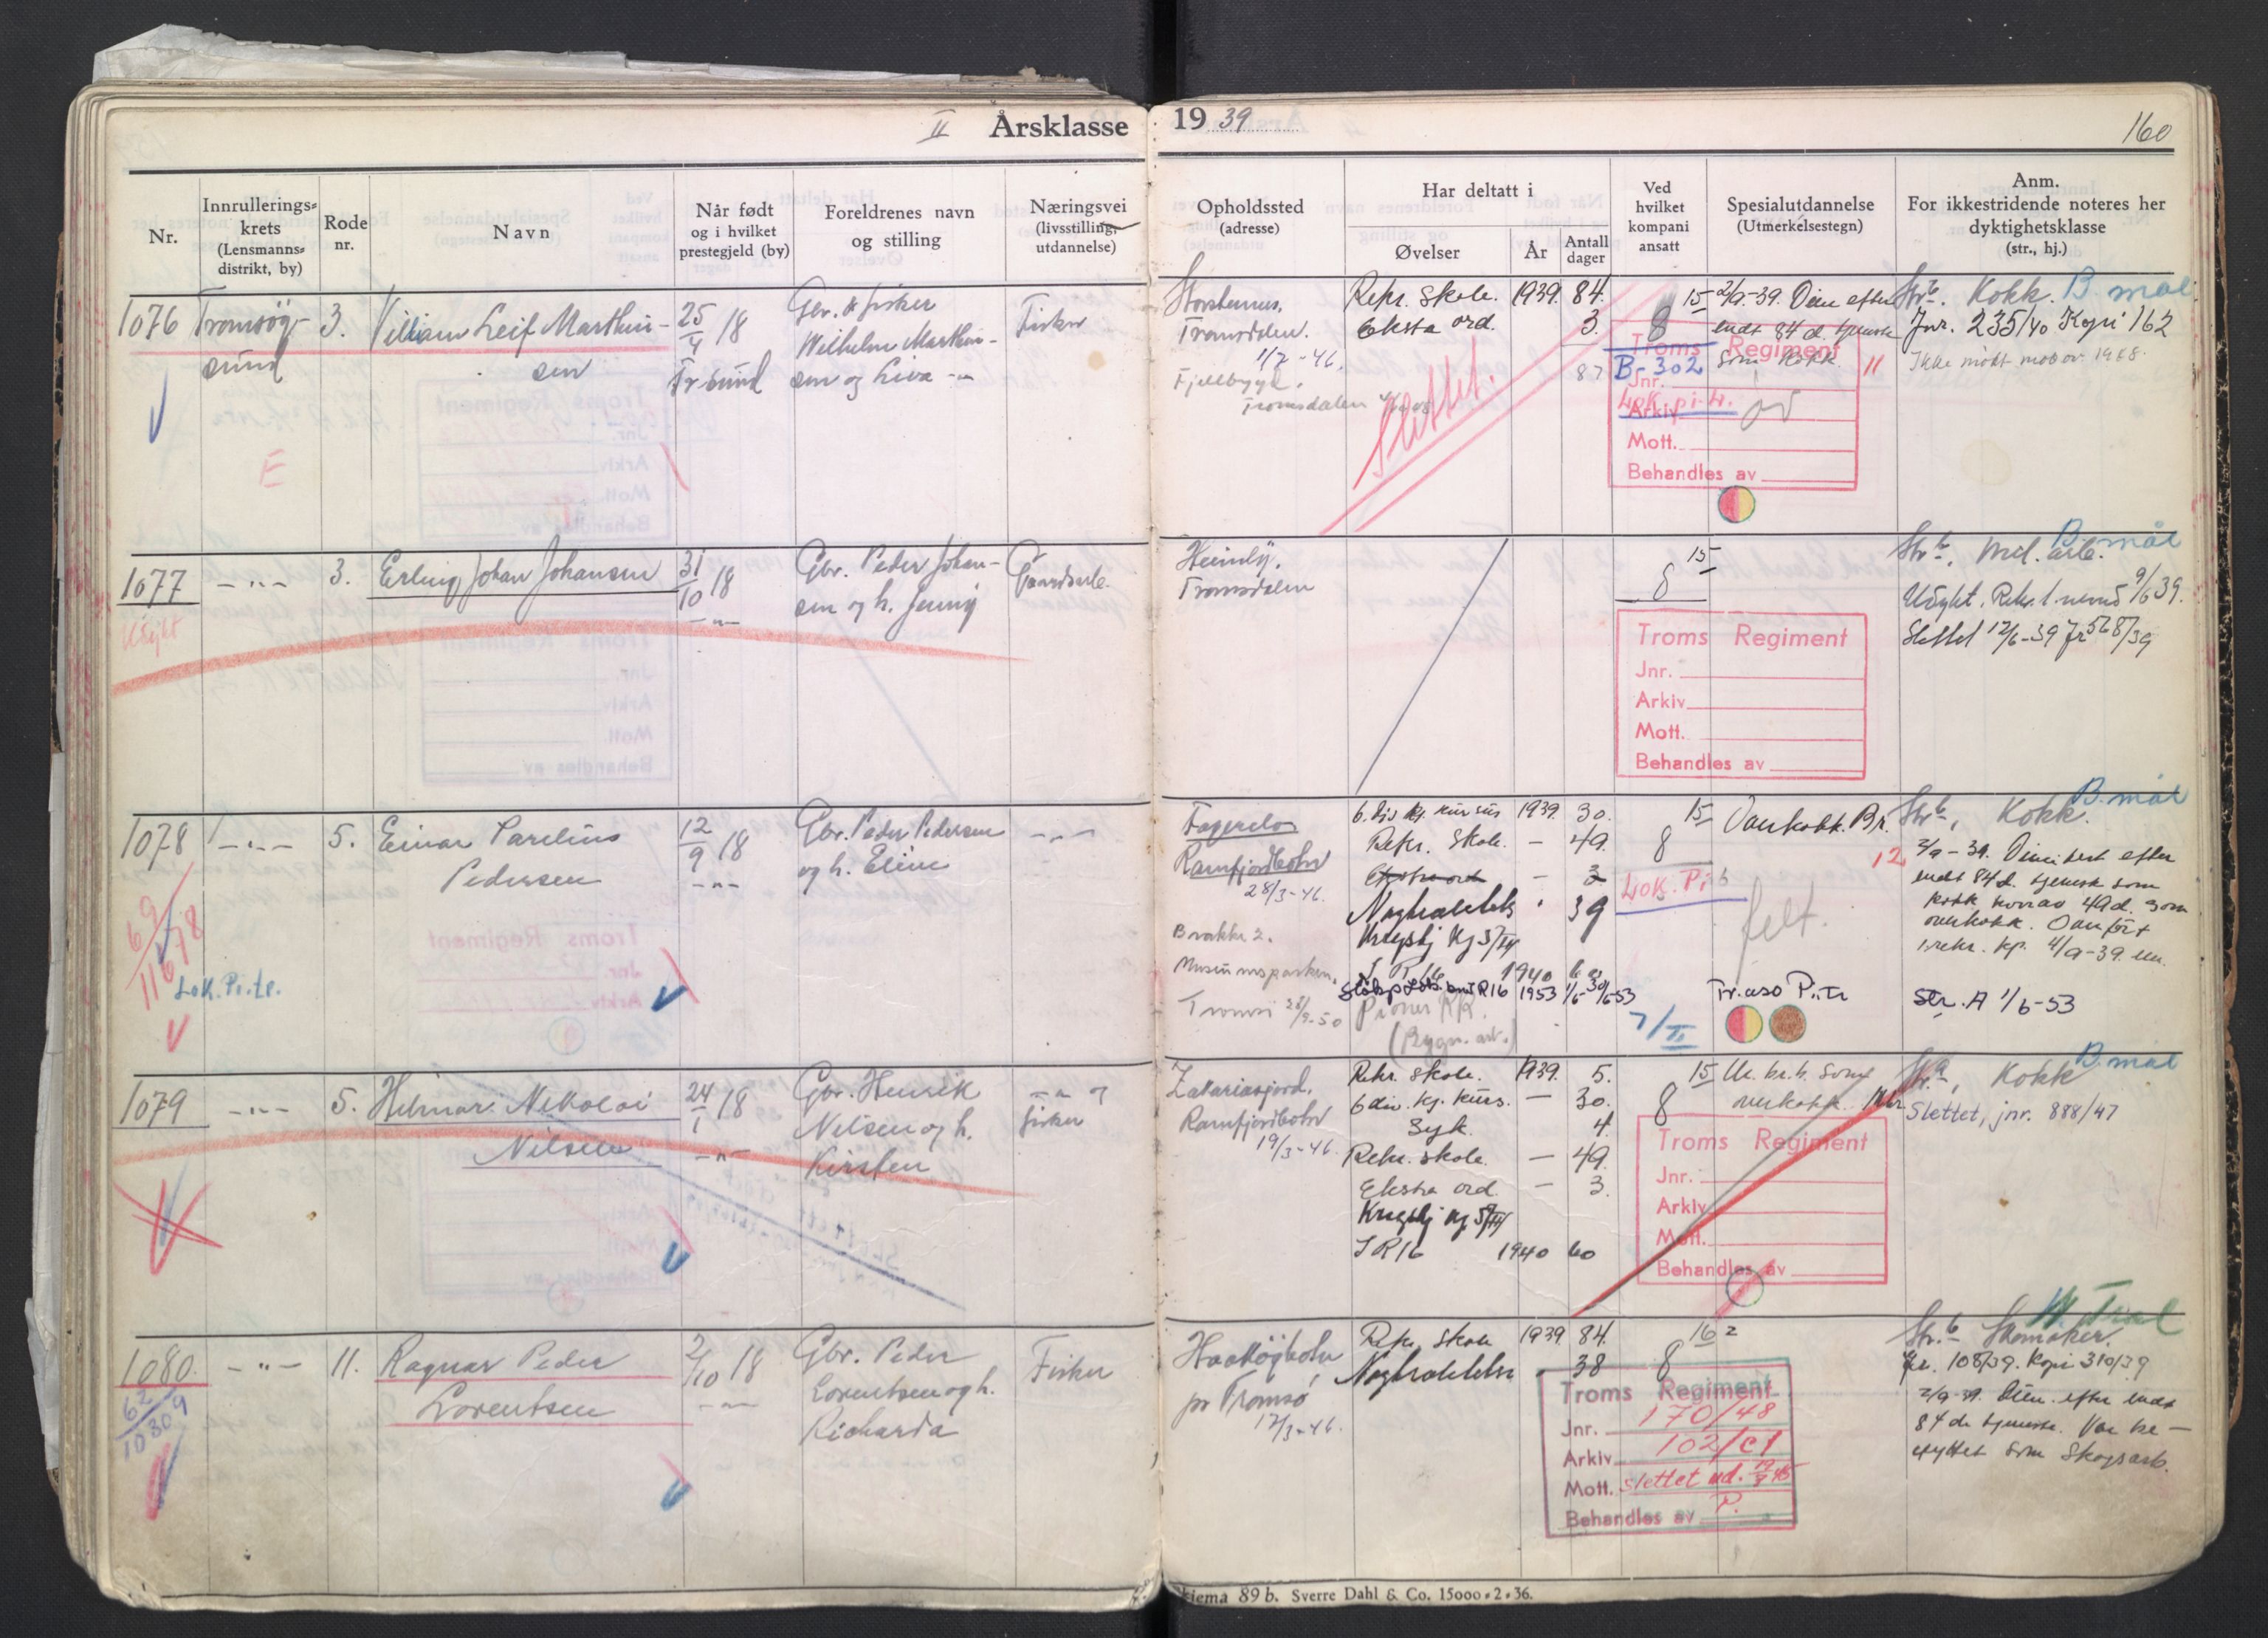 II Årsklasse 19 39
160
Nr.
Innrullerings-
krets
(Lensmanns-
distrikt, by)
Rode
nr.
Navn
Når født
og i hvilket
prestegjeld (by)
Foreldrenes navn
og stilling
Næringsvei
(livsstilling,
utdannelse)
Opholdssted
(adresse)
Har deltatt i
Øvelser
År
Antall
dager
Ved
hvilket
kompani
ansatt
Spesialutdannelse
(Utmerkelsestegn)
Anm.
For ikkestridende noteres her
dyktighetsklasse
(str., hj.)
1076 Tromsøy-
sund
3.
Villiam Leif Marthin-
sen
25/4 18
Tr sund
Gbr. & fisker
Wilhelm Marthin-
sen og Liva
Fisker
E
Tromsdalen.
1/2-46.
Tromsdalen
Rekr. Skole. 1939. 84.
Ekstra ord. 3.
87
Slettet.
15
8
B-302
Lok. pi.
2/9-39. Dim efter
endt 84 d. tjeneste
som Kokk. 11
Troms Regiment
Jnr.
Arkiv
Mott.
Behandles av
Str. b. Kokk. B. mål
Jnr. 235/40 Kopi 162
Ikke møtt
1077 -"- 3.
Erling Johan Johansen
31/10 18
-"-
Gbr. Peder Johan-
sen og h. Jenny
Gaardsarb.
Udykt
Heimly.
Tromsdalen
15
8
Troms Regiment
Jnr.
Arkiv
Mott.
Behandles av
Str. b, Mil. arb. B. mål
Udykt. Rekr. 1. nemd 9/6 39.
Slettet 12/6-39 Jr 568/39
1078 -"- 5.
Einar Parelius
Pedersen
12/9 18
-"-
Gbr. Peder Pedersen
og h. Eline
-"-
69/11678
Lok. Pi. tr.
Ramfjordbotn
28/3-46.
Brakke 2.
Museumsparken.
Tromsø 28/9-50
6. Div kj. kursus 1939. 30.
Rekr. Skole. - 49.
Ekstra ord - 3
Nøytralitets " 39
Krigstj Kj 5/III
I R 16 1940 60
1953 1/6-30/6-53
Pioner KK.
(Bygn. art.)
15
8
Lok. Pi
7/II
Overkokk. Br.
12
felt.
Str. b, Kokk. B. mål
2/9-39. Dimitert efter
endt 84 d. tjeneste som
kokk hvorav 49 d. som
overkokk. Overført
1 rekr. kp. 4/9-39.
Str. A 1/6-53
1079 -"- 5.
Hilmar Nikolai
Nilsen
24/1 18
-"-
Gbr. Henrik
Nilsen og h.
Kirsten
-"- og
fisker
Zakariasjord.
Ramfjordbotn
19/3-46.
Rekr. Skole. 1939. 5.
6 div. kj. kurs. - 30.
Syk. 4.
Rekr. skole. - 49.
Ekstra ord. - 3.
Krigstj kj 5/III
I R 16 1940 60
15
8
overkokk.
Troms Regiment
Jnr.
Arkiv
Mott.
Behandles av
Kokk B. mål
Slettet, jnr. 888/47
1080. -"- 11.
Ragnar Peder
Lorentsen
2/10 18
-"-
Gbr. Peder
Lorentsen og h.
Richarda
Fisker
62/10309
Haakøybotn
pr Tromsø
12/3-46.
Rekr. Skole 1939. 84.
Nøytralitets 38
16 2
8
Troms Regiment
Jnr. 170/48
Arkiv 102/C1
Mott. slettet ud.
Behandles av P.
Str. b Skomaker.
Jr. 108/39. Kopi 310/39
2/9-39. Dim. efter endt
84 ds tjeneste. Var be-
skyttet som Skogsarb.
Skjema 89 b. Sverre Dahl & Co. 15000-2-36.